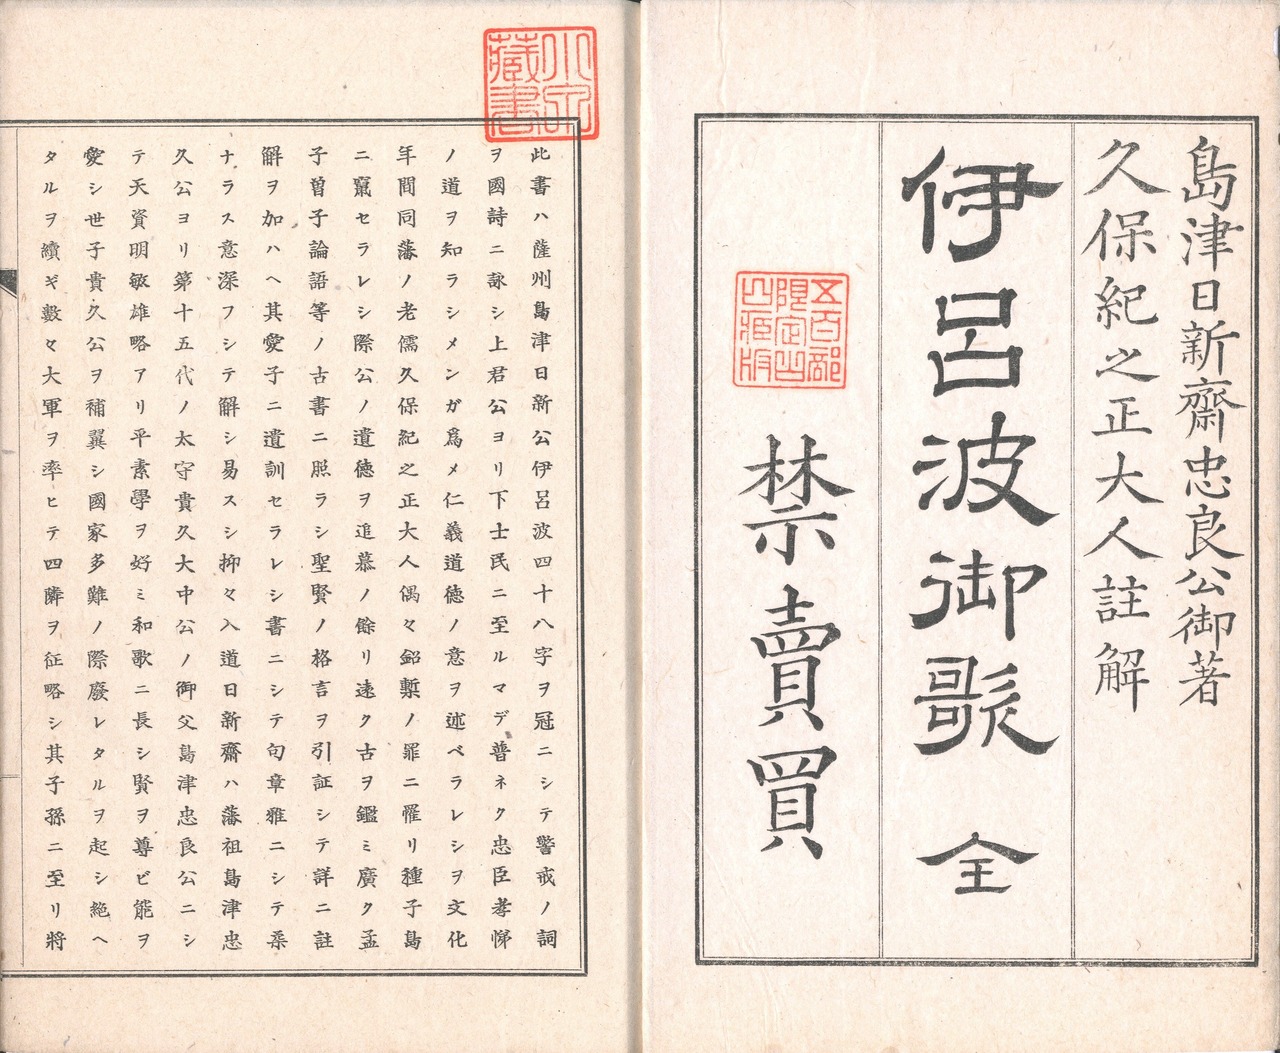 島津日新齋忠良公御著
久保紀之正大人註解
伊呂波御歌 全
五百部
限定出
版
禁賣買
藏書
此書ハ薩州島津日新公伊呂波四十八字ヲ冠ニシテ警戒ノ詞
ヲ國詩ニ詠シ上君公ヨリ下士民ニ至ルマデ普ネク忠臣孝悌
ノ道ヲ知ラシメンガ爲メ仁義道徳ノ意ヲ述ベラレシヲ文化
年間同藩ノ老儒久保紀之正大人偶々鉛槧ノ罪ニ罹リ種子島
ニ竄セラレシ際公ノ遺徳ヲ追慕ノ餘リ遠ク古ヲ鑑ミ廣ク孟
子曽子論語等ノ古書ニ照ラシ聖賢ノ格言ヲ引証シテ詳ニ註
解ヲ加ハヘ其愛子ニ遺訓セラレシ書ニシテ句章雅ニシテ柔
ナラス意深フシテ解シ易スシ抑々入道日新齋ハ藩祖島津忠
久公ヨリ第十五代ノ太守貴久大中公ノ御父島津忠良公ニシ
テ天資明敏雄略アリ平素學ヲ好ミ和歌ニ長シ賢ヲ尊ビ能ヲ
愛シ世子貴久公ヲ補翼シ國家多難ノ際廢レタルヲ起シ絶ヘ
タルヲ續ギ數々大軍ヲ率ヒテ四隣ヲ征略シ其子孫ニ至リ將